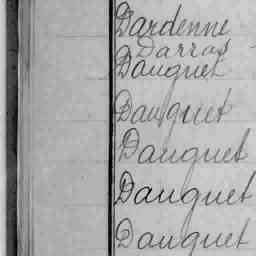 Dardenne
Darras
Dauquet
Dauquet
Dauquet
Dauquet
Dauquet